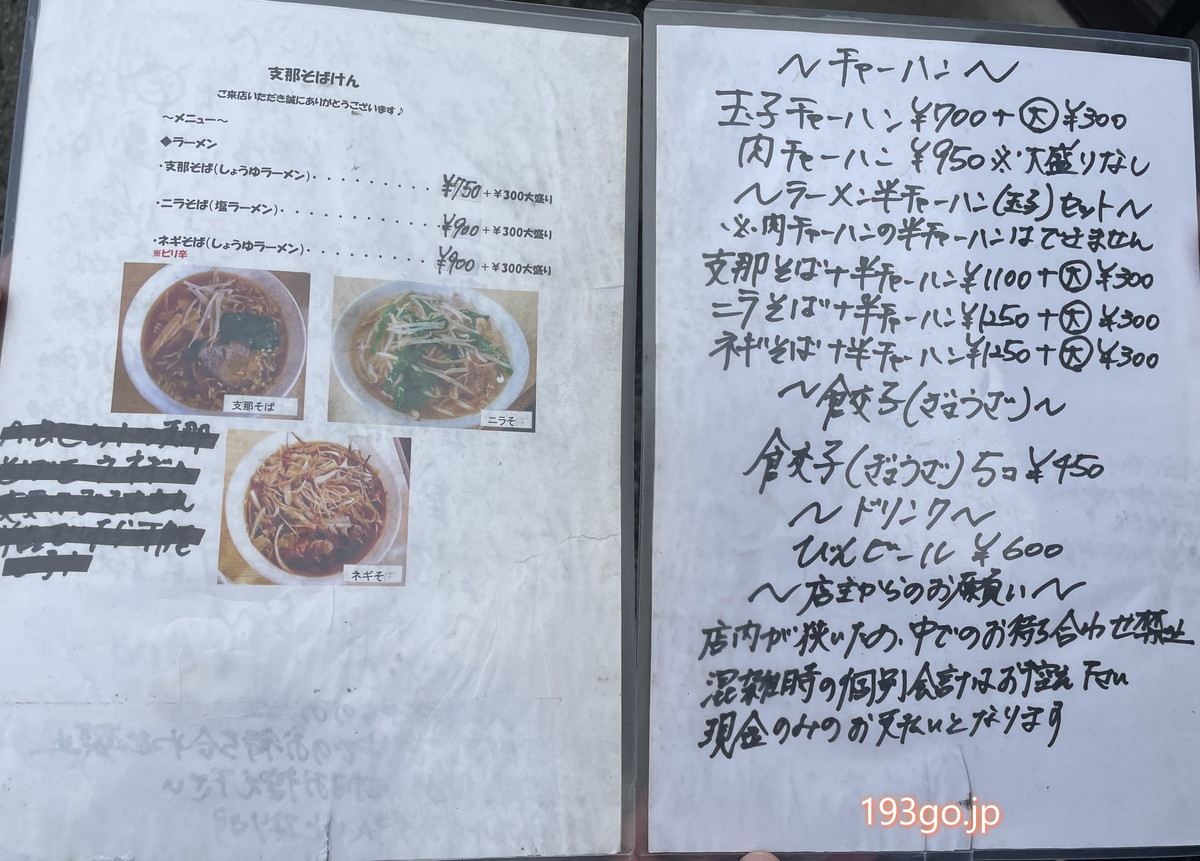 支那そばけん
ご来店いただき誠にありがとうございます♪
～メニュー～
◆ラーメン
・支那そば(しょうゆラーメン)・・・・・・・・・・¥750+¥300大盛り
・ニラそば(塩ラーメン)・・・・・・・・・・・・¥900+¥300大盛り
・ネギそば(しょうゆラーメン)・・・・・・・・・・¥900+¥300大盛り
※ピリ辛
支那そば
ニラそ
ネギそ
～チャーハン～
玉子チャーハン ¥700+㊅¥300
肉チャーハン ¥950※大盛りなし
～ラーメン半チャーハン(玉子)セット～
※肉チャーハンの半チャーハンはできません
支那そば+半チャーハン¥1100+大¥300
ニラそば+半チャーハン¥1250+大¥300
ネギそば+半チャーハン¥1250+大¥300
～餃子(ぎょうざ)～
餃子(ぎょうざ)5コ¥450
～ドリンク～
びんビール ¥600
～店主からのお願い～
店内が狭いため、中でのお待ち合わせ禁止
混雑時の個別会計はお控え下さい
現金のみのお支払いとなります
193go.jp